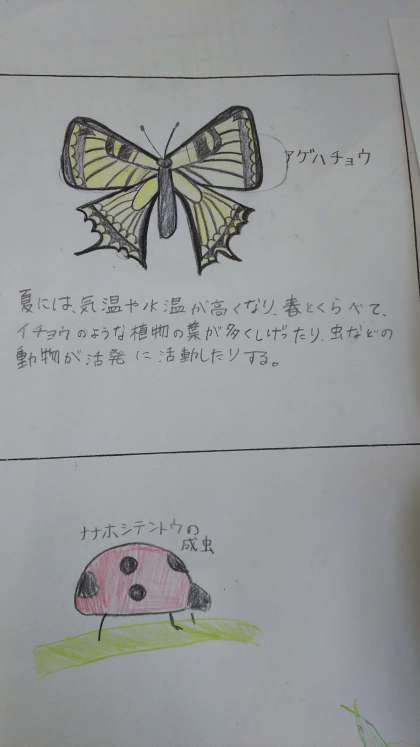 アゲハチョウ
夏には、気温や水温が高くなり、春とくらべて、
イチョウのような植物の葉が多くしげったり、虫などの
動物が活発に活動したりする。
ナナホシテントウの
成虫